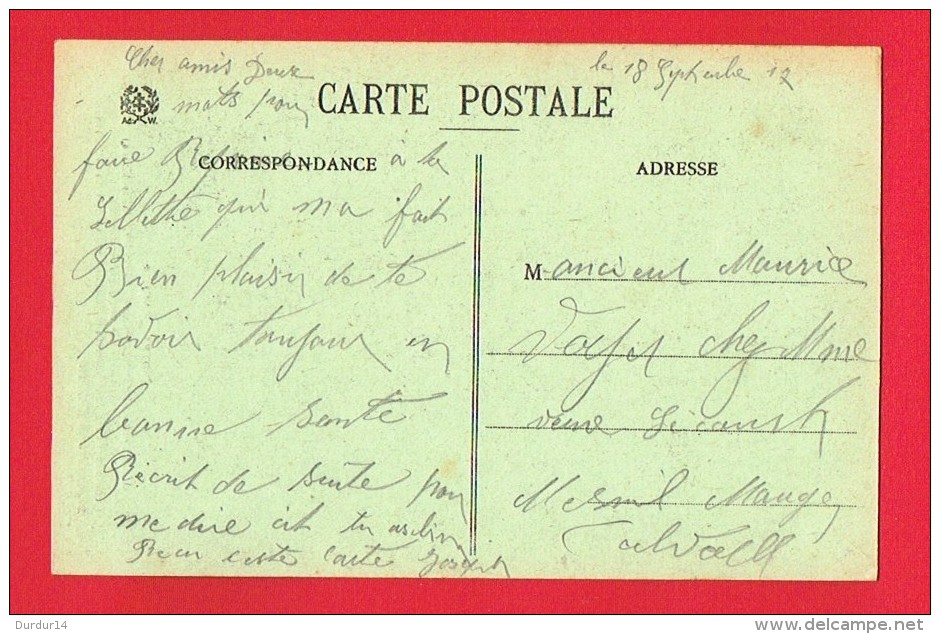 Cher amis Deux
le 18 Septembre 17
mots pour
CARTE POSTALE
A. W.
CORRESPONDANCE
ADRESSE
faire Reponse à la
qui ma fait
Bien plaisir de te
savoir toujour en
bonne sante
Récrit de suite pour
me dire cit tu as bien
Recu cette carte Joseph
M ancieut Maurice
chez Mme
veuve
Mesnil Mauger
Calvados
Durdur14
delcampe.net